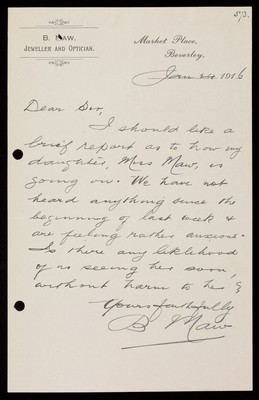 573.
B. MAW.
JEWELLER AND OPTICIAN.
Market Place,
Beverley,
Jan 1916
Dear Sir,
I should like a
brief report as to how my
daughter, Miss Maw, is
going on. We have not
heard anything since the
beginning of last week &
are feeling rather anxious.
Is there any likelihood
of us seeing her soon,
without harm to her?
Yours faithfully
B Maw